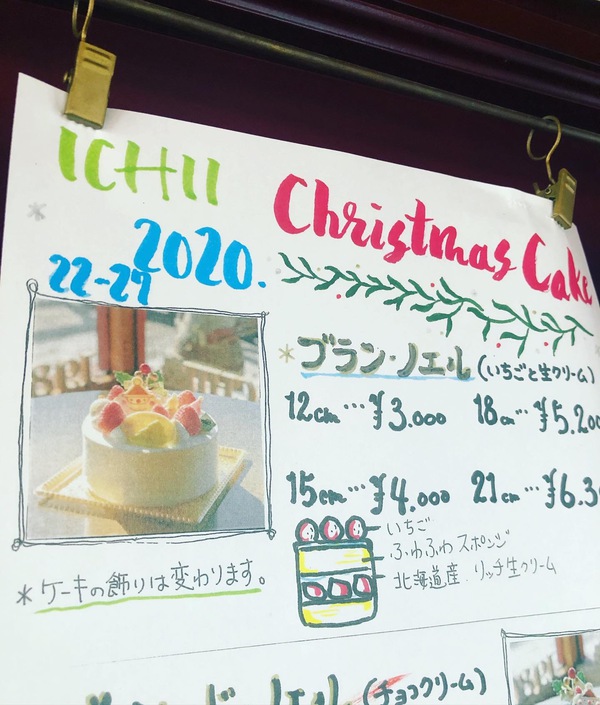 ICHII
Christmas Cake
2020.
22-27
*ブラン・ノエル (いちごと生クリーム)
12cm…¥3.000 18cm…¥5.200
15cm…¥4.000 21cm…¥6.3
いちご
ふわふわスポンジ
北海道産. リッチ生クリーム
*ケーキの飾りは変わります。
ノエル (チョコクリーム)